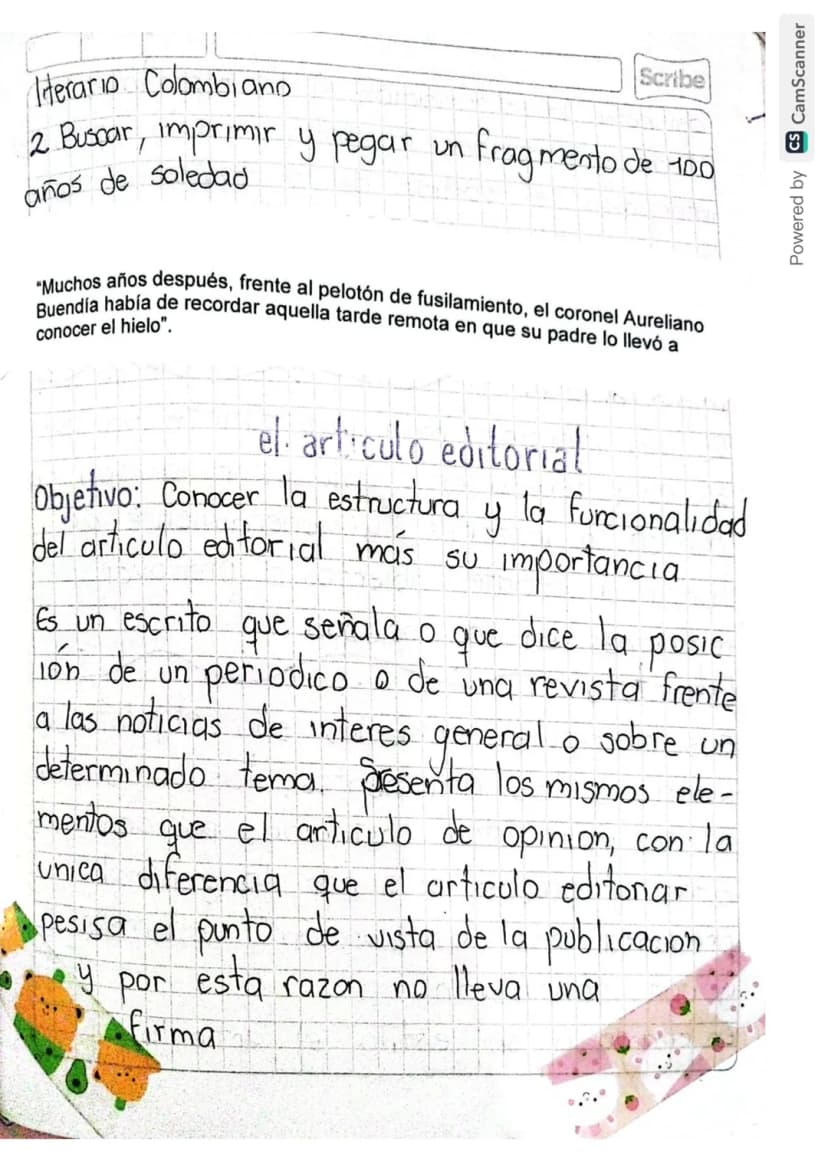 Scribe
literario Colombiano
2 Buscar, imprimir y pegar un fragmento de 100
años de soledad
"Muchos años después, frente al pelotón de fusilamiento, el coronel Aureliano
Buendía había de recordar aquella tarde remota en que su padre lo llevó a
conocer el hielo".
el articulo editorial
Objetivo: Conocer la estructura y la funcionalidad
del articulo editorial más su importancia
Es un escrito que señala o que dice la posic
ión de un periodico o de una revista frente
a las noticias de interes general o sobre un
determinado tema. Presenta los mismos ele-
mentos que el articulo de opinion, con la
unica diferencia que el articulo editoriar
pesisa el punto de vista de la publicacion
y por esta razon no lleva una
firma
Powered by CS CamScanner